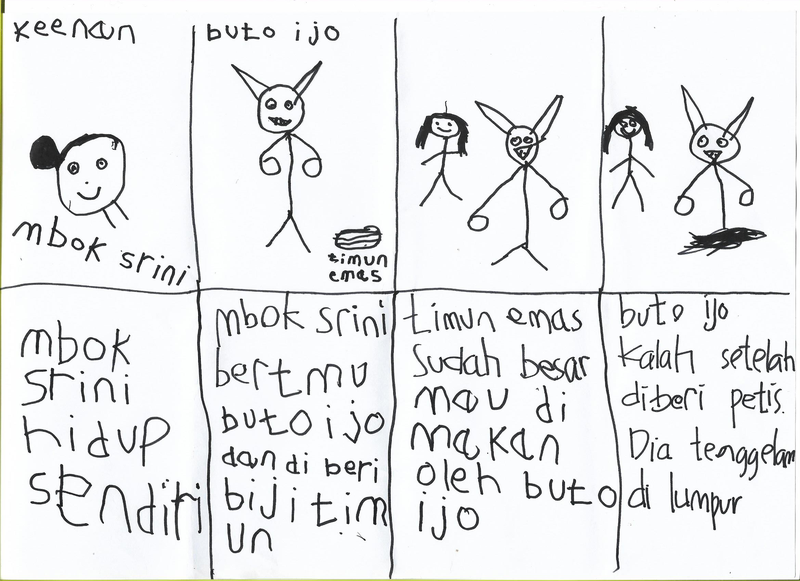 keenan
mbok srini
buto ijo
timun
emas
mbok
srini
hidup
sendiri
mbok srini
bertmu
buto ijo
dan di beri
biji tim
un
timun emas
sudah besar
mau di
makan
oleh buto
ijo
buto ijo
kalah setelah
diberi petis.
Dia tenggelam
di lumpur